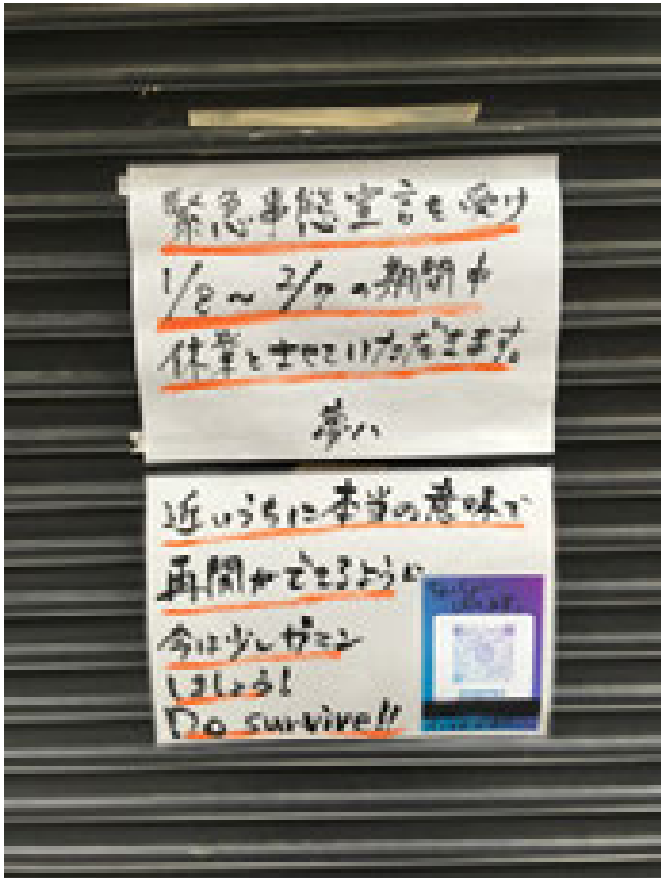 緊急事態宣言を受け
1/8~2/7の期間中
休業とさせていただきます。
夢八
近いうちに本当の意味で
再開ができるように
今は少しガマン
しましょう!
Do survive!!